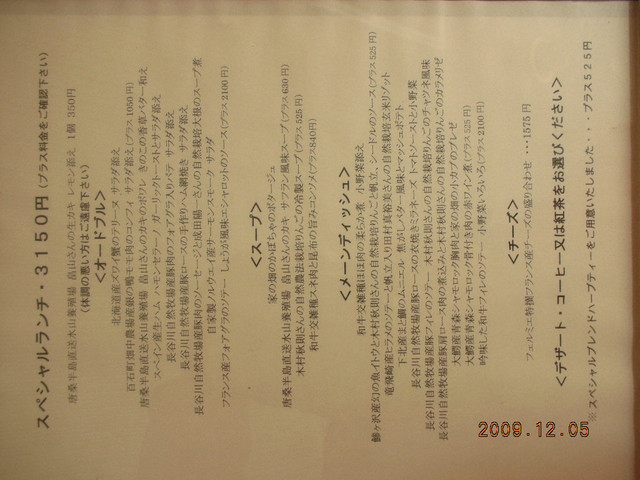 スペシャルランチ・3150円(プラス料金をご確認下さい)
唐桑半島直送水山養殖場 畠山さんの生カキ レモン添え 1個 350円
(体調の悪い方はご遠慮下さい)
<オードブル>
北海道産ズワイ蟹のテリーヌ サラダ添え
百石町畑中農場産銀の鴨モモ肉のコンフィ サラダ添え(プラス1050円)
唐桑半島直送水山養殖場 畠山さんのカキのポワレ きのこの香草バター和え
スペイン産生ハム ハモンセラーノ ガーリックトーストとサラダ添え
長谷川自然牧場産豚肉のフォアグラ入りパテ サラダ添え
長谷川自然牧場産豚ロースの手作りハム網焼き サラダ添え
長谷川自然牧場産豚肉のソーセージと成田陽一さんの自然栽培大根のスープ煮
自家製ノルウェイ産サーモンスモーク サラダ
フランス産フォアグラのソテー しょうが風味エシャロットのソース(プラス2100円)
<スープ>
家の畑のかぼちゃのポタージュ
唐桑半島直送水山養殖場 畠山さんのカキ サフラン風味スープ(プラス630円)
木村秋則さんの自然農法栽培りんごの冷製スープ(プラス525円)
和牛交雑種スネ肉と昆布の旨みコンソメ(プラス840円)
<メーンディッシュ>
和牛交雑種ほほ肉の柔らか煮 小野菜添え
鰺ヶ沢産幻の魚イトウと木村秋則さんの自然栽培りんごと帆立、シードルのソース(プラス525円)
竜飛崎産ヒラメのソテーと帆立入り田村真裕美さんの自然栽培玄米リゾット
下北産まと鯛のムニエル・焦がしバター風味とマッシュポテト
長谷川自然牧場産豚ロースの衣焼きミラネーズ トマトソースと小野菜
長谷川自然牧場産豚フィレのソテー 木村秋則さんの自然栽培りんごのチャツネ風味
長谷川自然牧場産豚肩ロース肉の煮込みと木村秋則さんの自然栽培りんごのカラメリゼ
大鰐産青森シャモロック胸肉と家の畑の小カブのブレゼ
大鰐産青森シャモロック骨付き肉の赤ワイン煮(プラス525円)
吟味した和牛フィレのソテー 小野菜いろいろ(プラス2100円)
<チーズ>
フェルミエ特撰フランス産チーズの盛り合わせ ・・・1575円
<デザート・コーヒー又は紅茶をお選びください>
※スペシャルブレンドハーブティーをご用意いたしました・・・プラス525円
2009.12.05